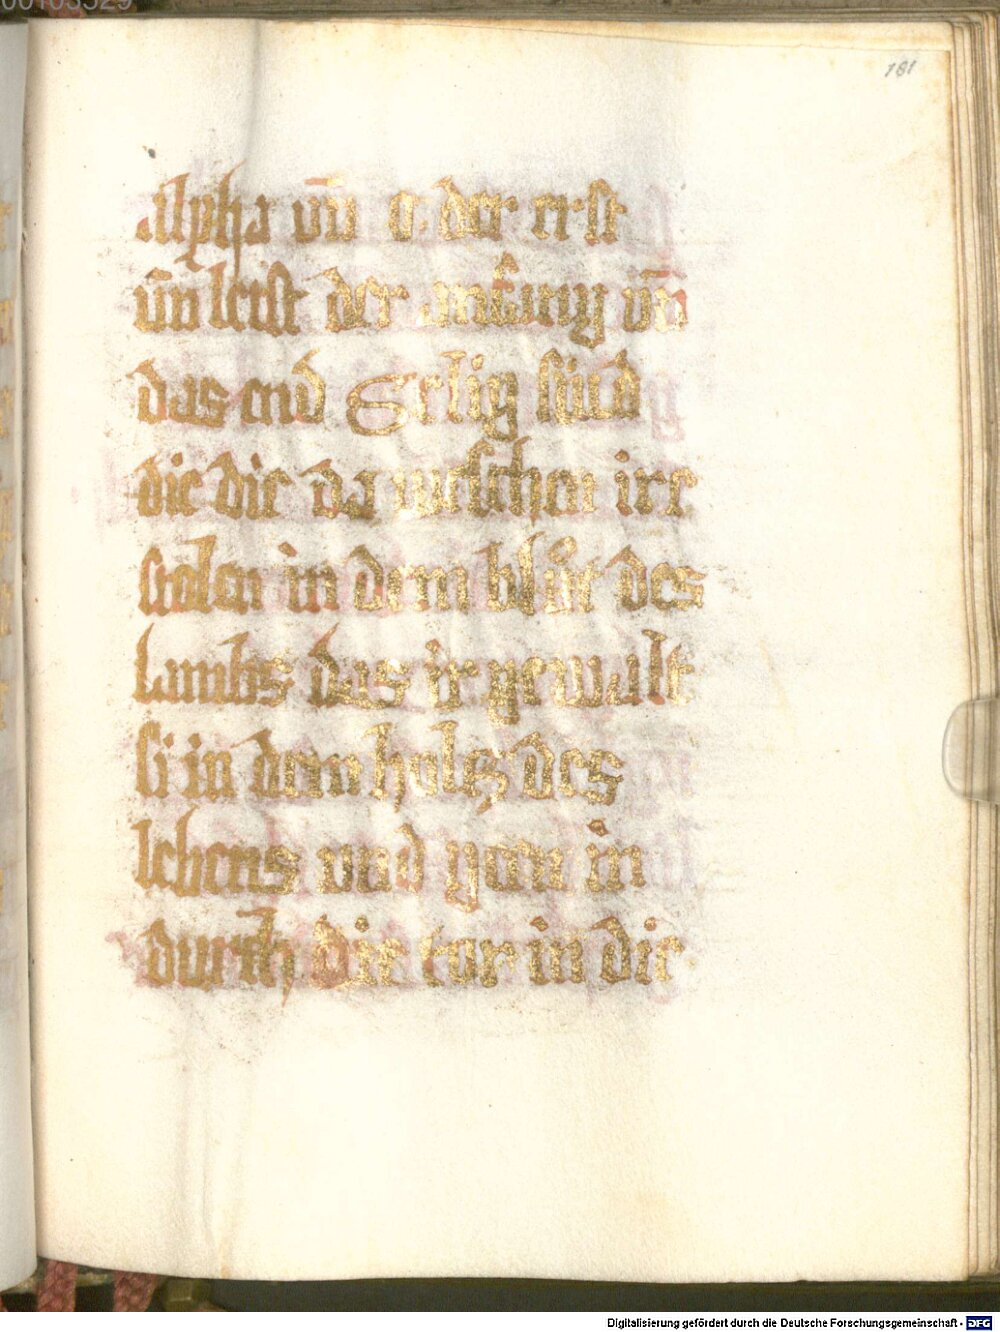 00103529
181
Alpha vn̄ o der erst
vn̄ leist der anfang vn̄
das end Selig sind
die die da weschen ire
stolen in dem blůt des
lambs das ir gewalt
si in dem holtz des
lebens vnd gen in
durch die tor in die
Digitalisierung gefördert durch die Deutsche Forschungsgemeinschaft - DFG